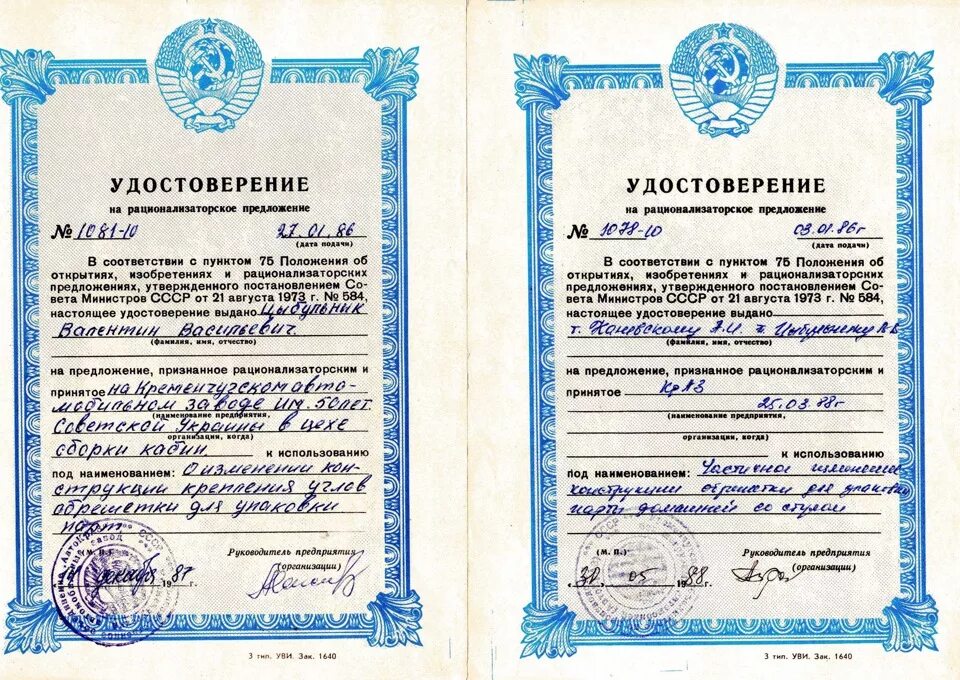 УДОСТОВЕРЕНИЕ
на рационализаторское предложение
№ 1081-10 27.01.86
(дата подачи)
В соответствии с пунктом 75 Положения об
открытиях, изобретениях и рационализаторских
предложениях, утвержденного постановлением Со-
вета Министров СССР от 21 августа 1973 г. № 584,
настоящее удостоверение выдано Цыбульник
Валентин Васильевич.
(фамилия, имя, отчество)
на предложение, признанное рационализаторским и
принятое на Кременчугском авто-
мобильном заводе им. 50 лет
(наименование предприятия,
Советской Украины в цехе
организации, когда)
сборки кабин к использованию
под наименованием: О изменении кон-
струкции крепления углов
обрешетки для упаковки
парт
(М. П.) Руководитель предприятия
(организации)
декабрь 1987 г.
3 тип. УВИ. Зак. 1640
УДОСТОВЕРЕНИЕ
на рационализаторское предложение
№ 1078-10 03.01.86г
(дата подачи)
В соответствии с пунктом 75 Положения об
открытиях, изобретениях и рационализаторских
предложениях, утвержденного постановлением Со-
вета Министров СССР от 21 августа 1973 г. № 584,
настоящее удостоверение выдано
т. Каневскому А.И. т. Цыбульнику В.В.
(фамилия, имя, отчество)
на предложение, признанное рационализаторским и
принятое КрАЗ
25.03.88г
(наименование предприятия,
организации, когда)
к использованию
под наименованием: Частичное изменение
конструкции обрешетки для упаковки
парты домашней со стулом
(М. П.) Руководитель предприятия
(организации)
„30" 05 1988 г.
3 тип. УВИ. Зак. 1640